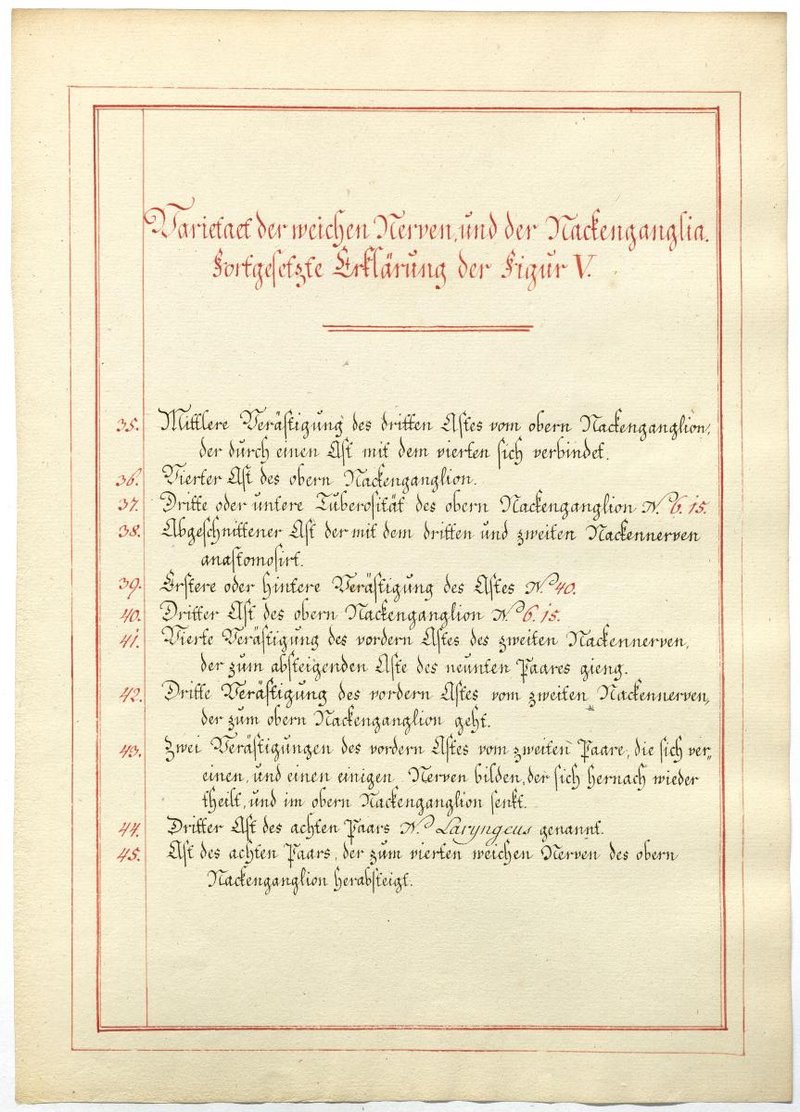 Varietaet der weichen Nerven, und der Nackenganglia.
Fortgesetzte Erklärung der Figur V.
35. Mittlere Verästigung des dritten Astes vom obern Nackenganglion,
der durch einen Ast mit dem vierten sich verbindet.
36. Vierter Ast des obern Nackenganglion.
37. Dritte oder untere Tuberosität des obern Nackenganglion N.o 6. 15.
38. Abgeschnittener Ast der mit dem dritten und zweiten Nackennerven
anastomosirt.
39. Erstere oder hintere Verästigung des Astes N.o 40.
40. Dritter Ast des obern Nackenganglion N.o 6. 15.
41. Vierte Verästigung des vordern Astes des zweiten Nackennerven,
der zum absteigenden Aste des neunten Paares gieng.
42. Dritte Verästigung des vordern Astes vom zweiten Nackennerven,
der zum obern Nackenganglion geht.
43. Zwei Verästigungen des vordern Astes vom zweiten Paare, die sich ver„
einen, und einen einigen Nerven bilden, der sich hernach wieder
theilt, und im obern Nackenganglion senkt.
44. Dritter Ast des achten Paars N.o Laryngeus genannt.
45. Ast des achten Paars, der zum vierten weichen Nerven des obern
Nackenganglion herabsteigt.